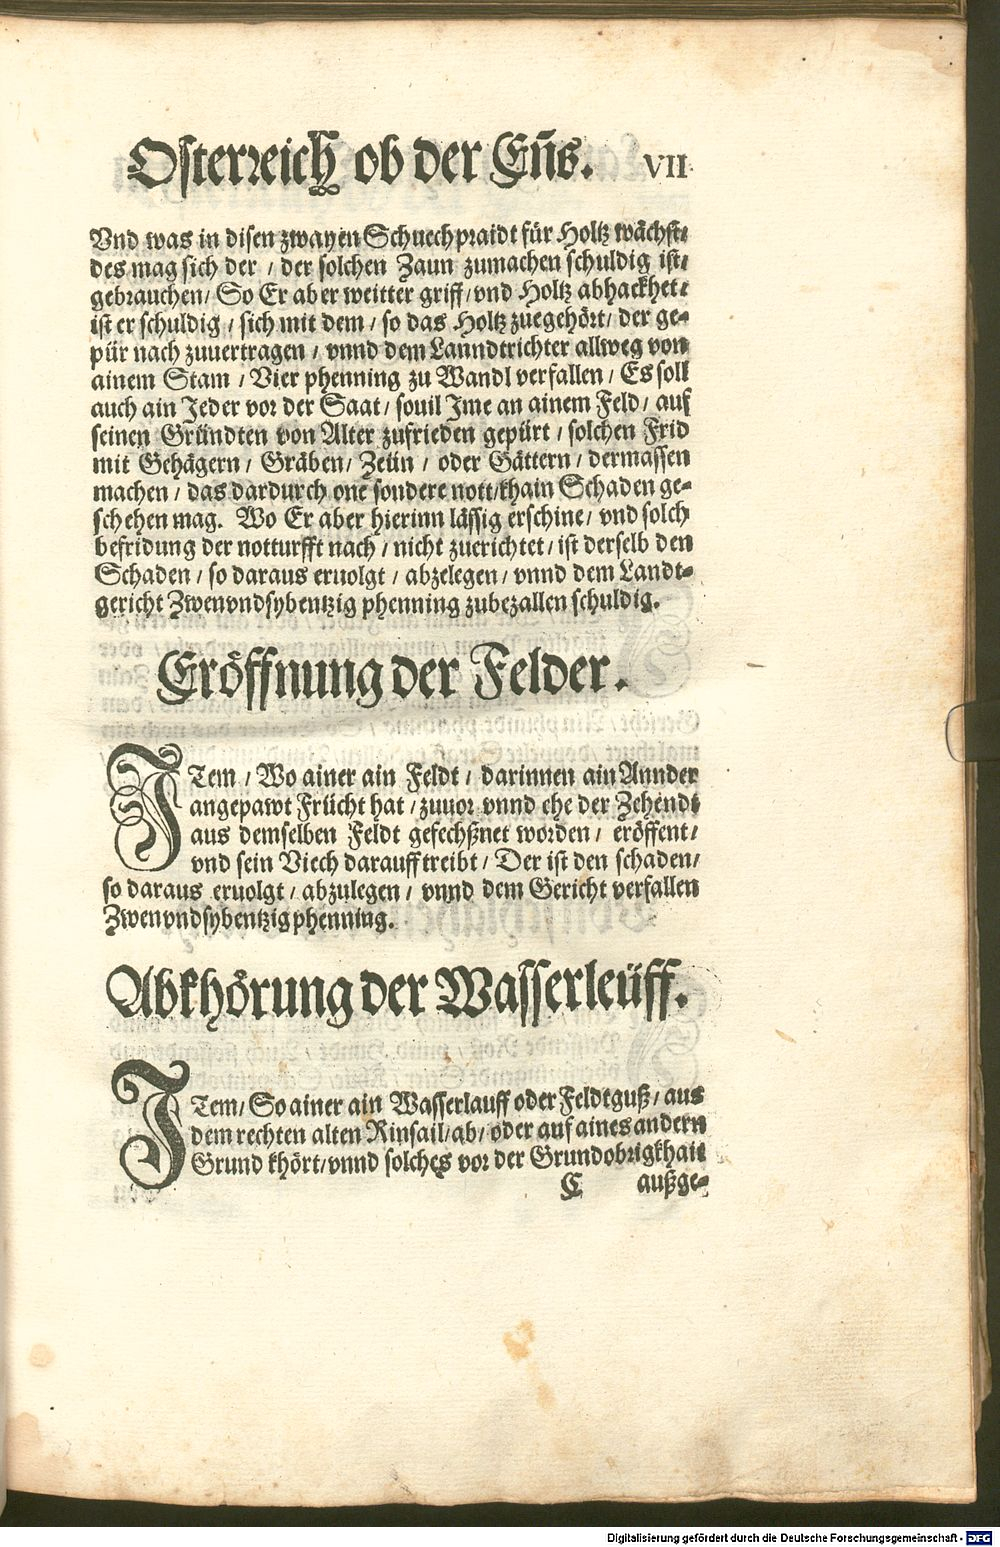 Osterreich ob der Eñs. VII
Vnd was in disen zwayen Schuech praidt für Holtz wächst /
des mag sich der / der solchen Zaun zumachen schuldig ist /
gebrauchen / So Er aber weitter griff / vnd Holtz abhackhet /
ist er schuldig / sich mit dem / so das Holtz zuegehört / der ge=
pür nach zuuertragen / vnnd dem Lanndtrichter allweg von
ainem Stam / Vier phenning zu Wandl verfallen / Es soll
auch ain Jeder vor der Saat / souil Jme an ainem Feld / auf
seinen Gründten von Alter zufrieden gepürt / solchen Frid
mit Gehägern / Gräben / Zeün / oder Gättern / dermassen
machen / das dardurch one sondere nott / khain Schaden ge=
schehen mag. Wo Er aber hierinn lässig erschine / vnd solch
befridung der notturfft nach / nicht zuerichtet / ist derselb den
Schaden / so daraus eruolgt / abzelegen / vnnd dem Landt=
gericht Zwenvndsybentzig phenning zubezallen schuldig.
Eröffnung der Felder.
JTem / Wo ainer ain Feldt / darinnen ain Annder
angepawt Frücht hat / zuuor vnnd ehe der Zehendt
aus demselben Feldt gefechßnet worden / eröffent /
vnd sein Viech darauff treibt / Der ist den schaden /
so daraus eruolgt / abzulegen / vnnd dem Gericht verfallen
Zwenvndsybentzig phenning.
Abkhörung der Wasserleüff.
JTem / So ainer ain Wasserlauff oder Feldtguß / aus
dem rechten alten Rinsail / ab / oder auf aines andern
Grund khört / vnnd solches vor der Grundobrigkhait
C außge=
Digitalisierung gefördert durch die Deutsche Forschungsgemeinschaft - DFG